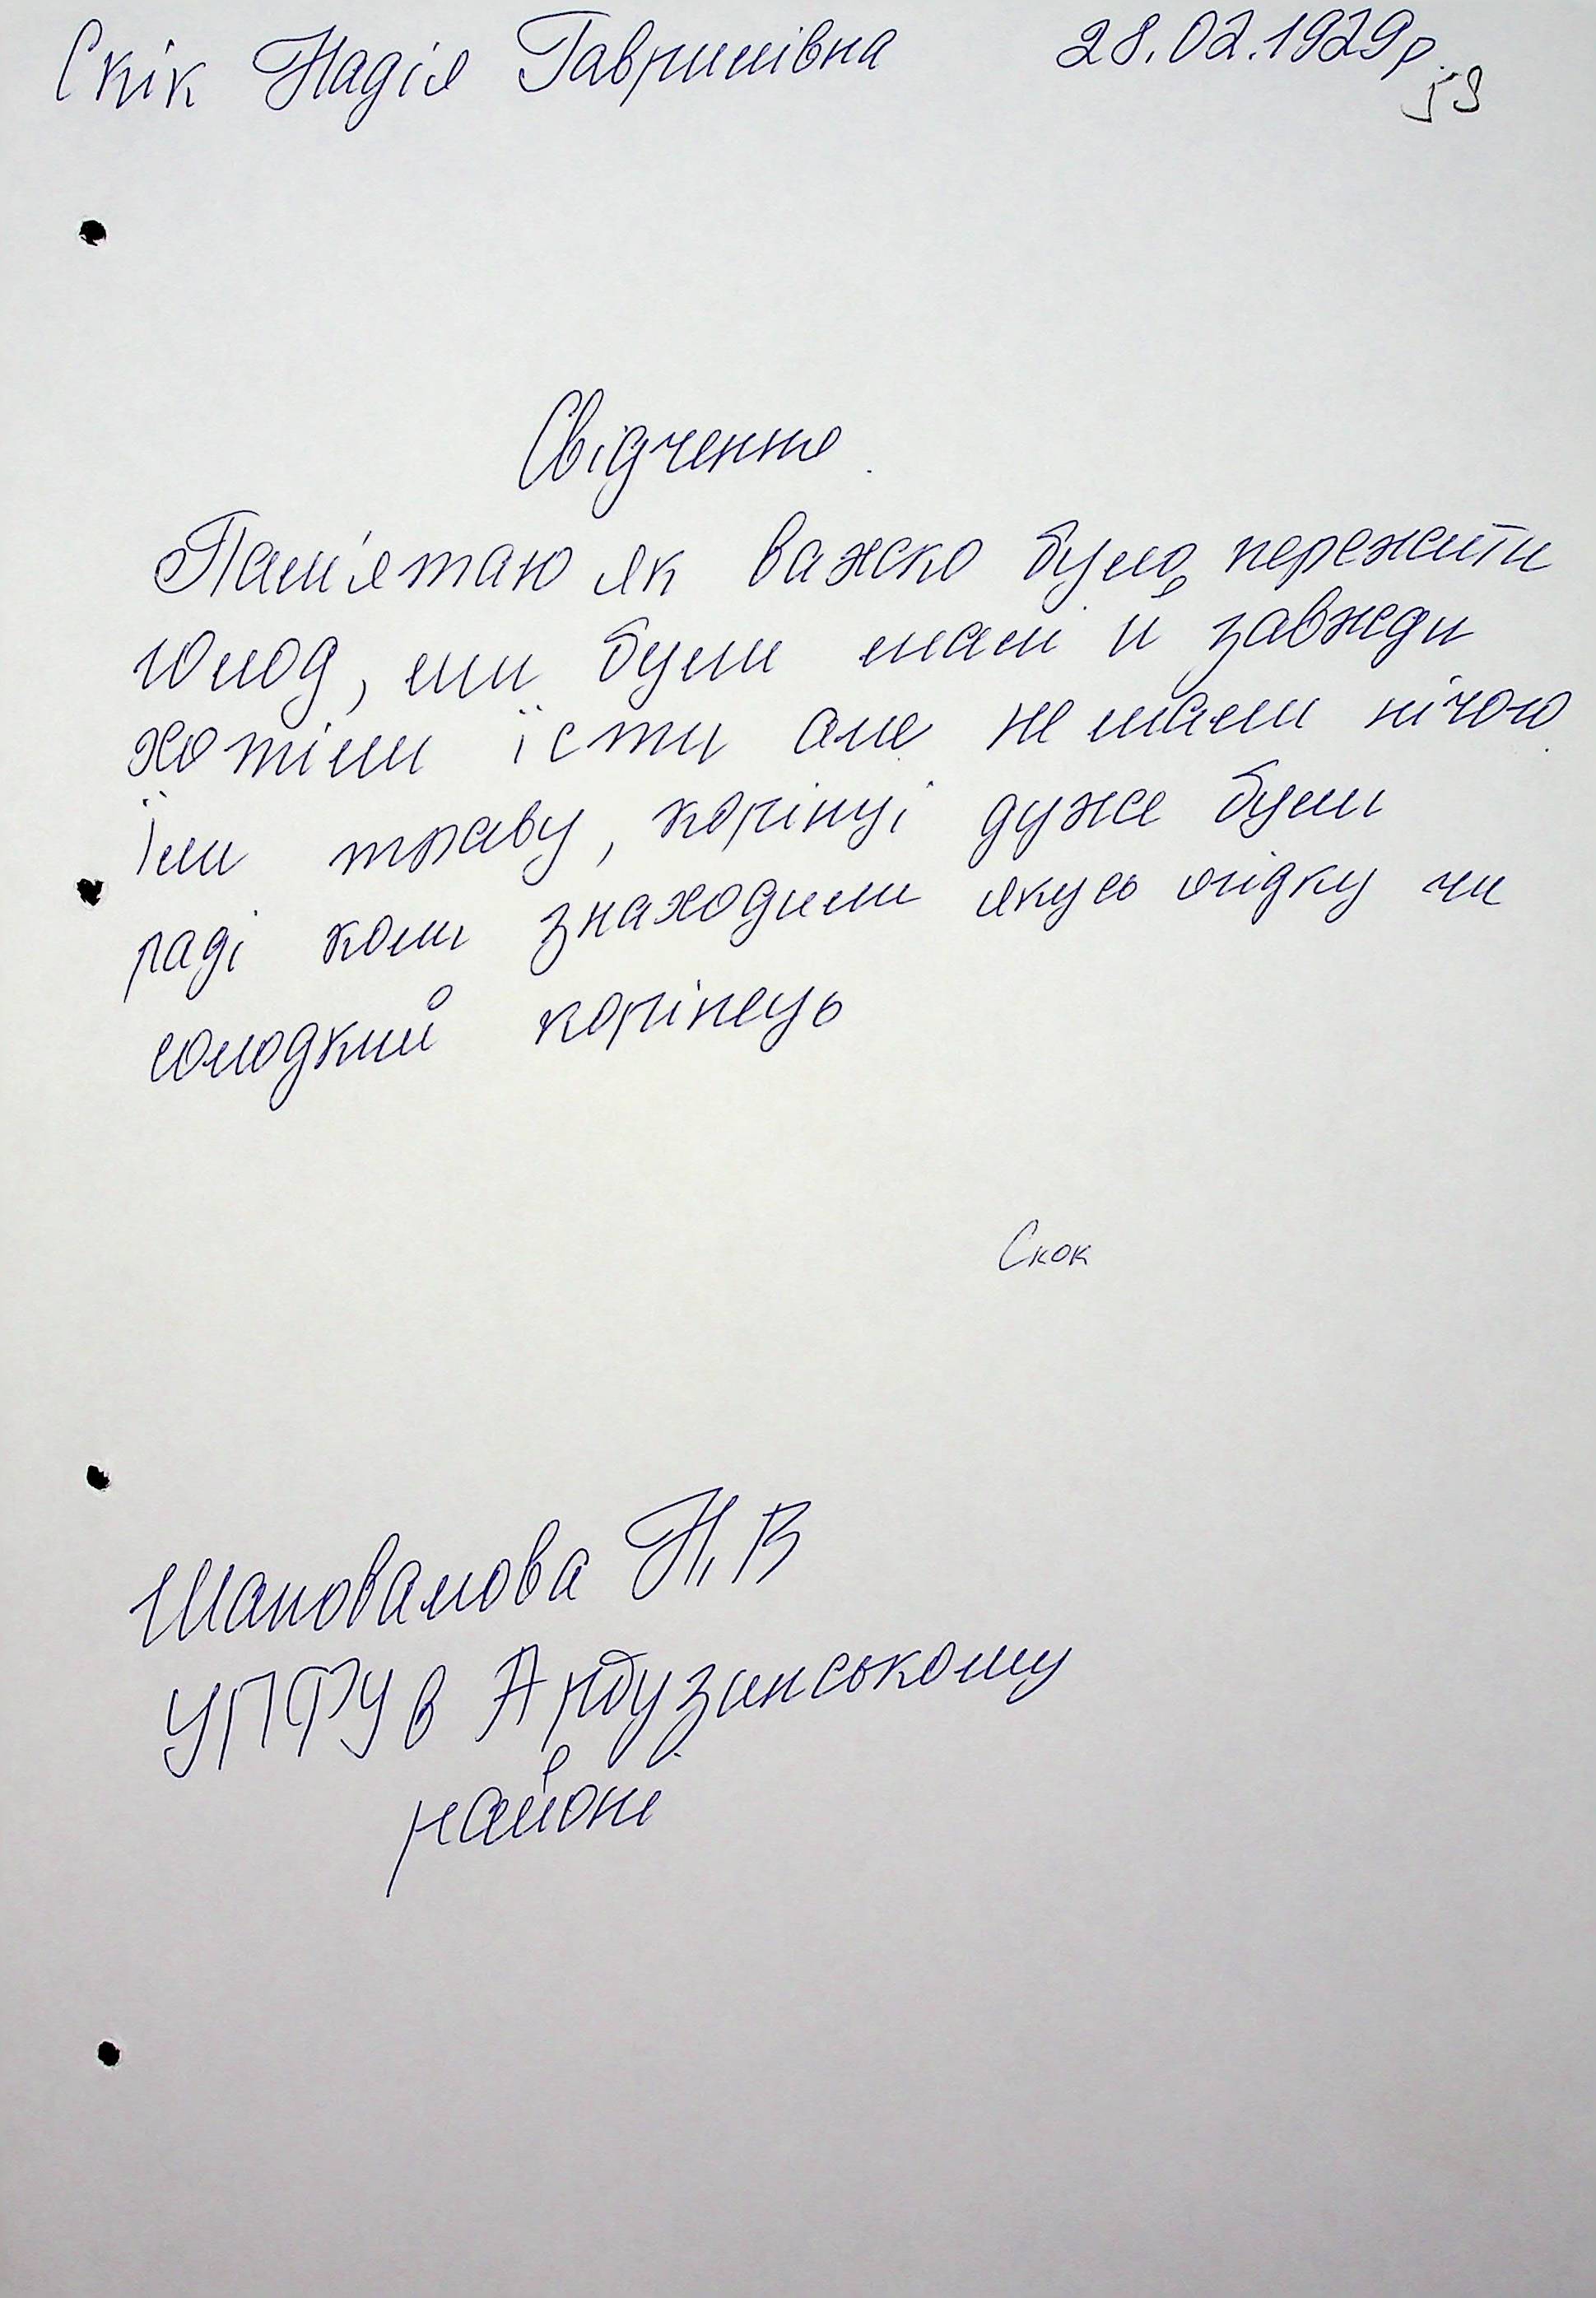 Скік Надія Гаврилівна 28.02.1929р.
59
Свідчення.
Пам'ятаю як важко було пережити
голод, ми були малі й завжди
хотіли їсти але не мали нічого.
Їли траву, корінці дуже були
раді коли знаходили якусь ягідку чи
солодкий корінець
Скок
Шаповалова Н.В
УПФУ в Арбузинському
районі